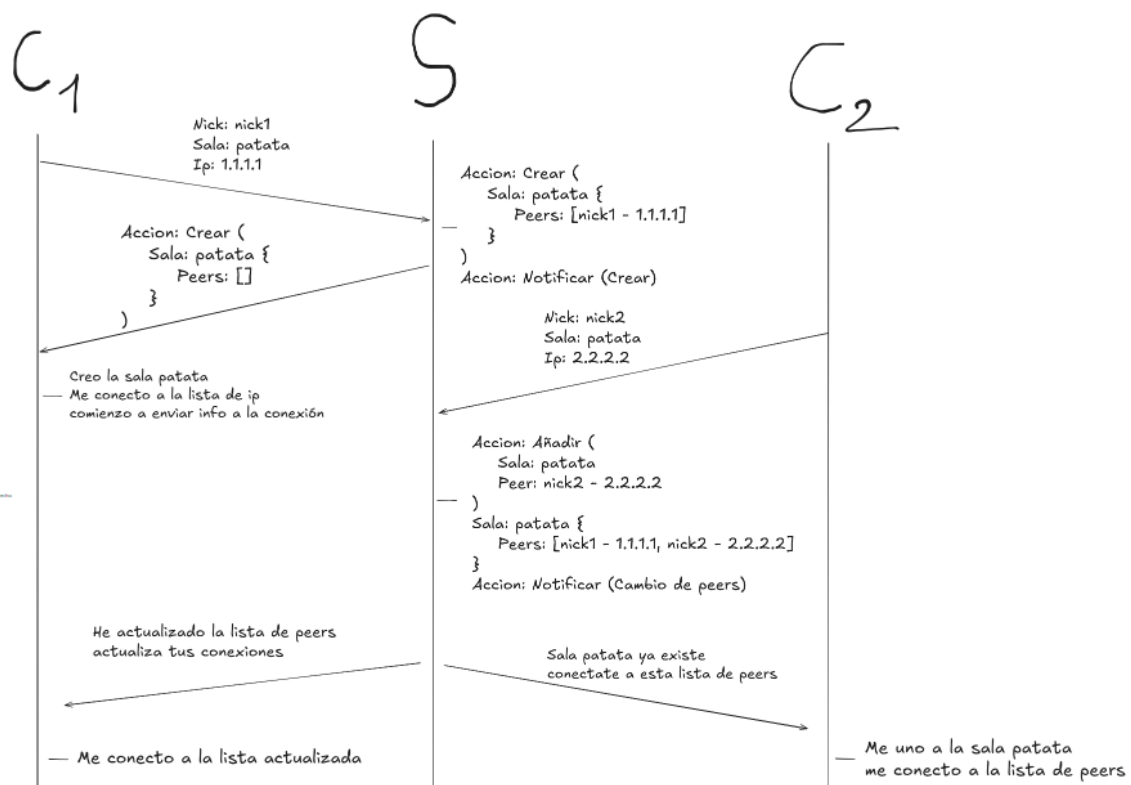 C1
S
C2
Nick: nick1
Sala: patata
Ip: 1.1.1.1
Accion: Crear (
Sala: patata {
Peers: [nick1 - 1.1.1.1]
}
)
Accion: Notificar (Crear)
Accion: Crear (
Sala: patata {
Peers: []
}
)
Creo la sala patata
Me conecto a la lista de ip
comienzo a enviar info a la conexión
Nick: nick2
Sala: patata
Ip: 2.2.2.2
Accion: Añadir (
Sala: patata
Peer: nick2 - 2.2.2.2
)
Sala: patata {
Peers: [nick1 - 1.1.1.1, nick2 - 2.2.2.2]
}
Accion: Notificar (Cambio de peers)
He actualizado la lista de peers
actualiza tus conexiones
Sala patata ya existe
conectate a esta lista de peers
Me conecto a la lista actualizada
Me uno a la sala patata
me conecto a la lista de peers